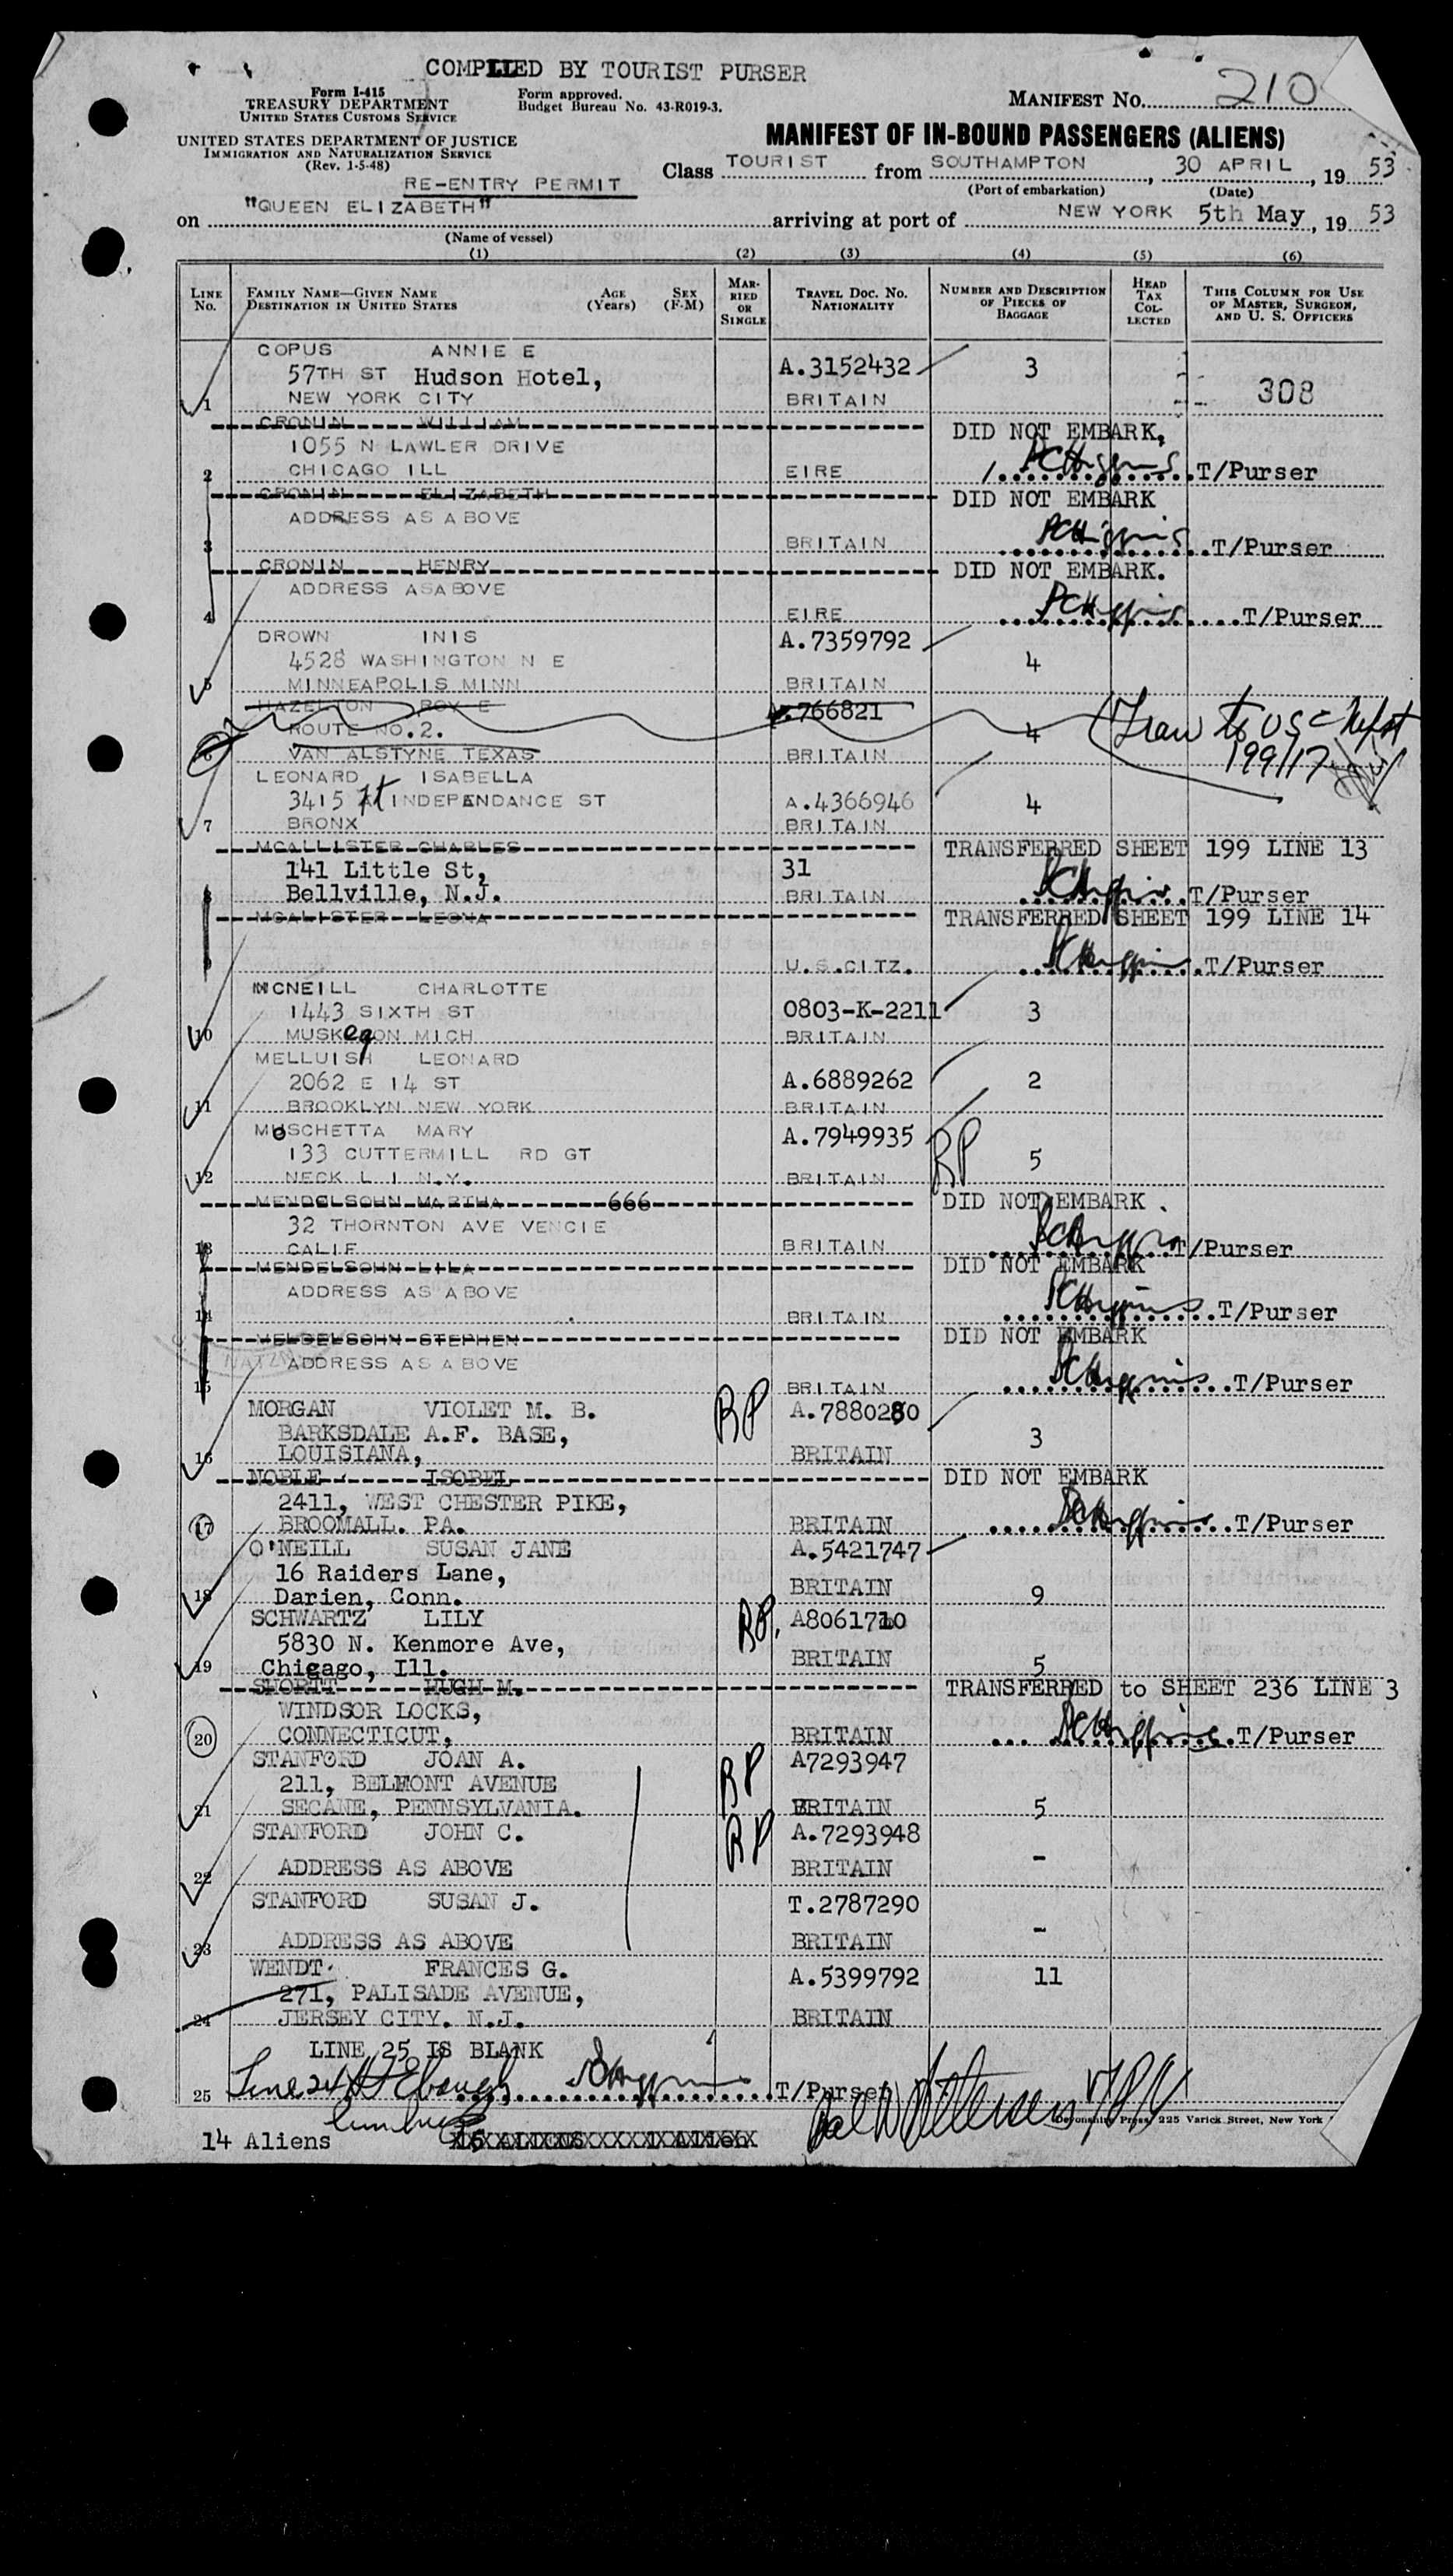 COMPILED BY TOURIST PURSER
Form I-415
TREASURY DEPARTMENT
UNITED STATES CUSTOMS SERVICE
Form approved.
Budget Bureau No. 43-R019-3.
MANIFEST NO. 210
UNITED STATES DEPARTMENT OF JUSTICE
IMMIGRATION AND NATURALIZATION SERVICE
(Rev. 1-5-48)
MANIFEST OF IN-BOUND PASSENGERS (ALIENS)
Class TOURIST from SOUTHAMPTON, 30 APRIL, 19 53
(Port of embarkation) (Date)
RE-ENTRY PERMIT
on "QUEEN ELIZABETH" arriving at port of NEW YORK 5th May, 19 53
(Name of vessel)
(1) (2) (3) (4) (5) (6)
LINE No.
FAMILY NAME—GIVEN NAME
DESTINATION IN UNITED STATES
AGE (Years)
SEX (F-M)
MARRIED OR SINGLE
TRAVEL DOC. NO.
NATIONALITY
NUMBER AND DESCRIPTION OF PIECES OF BAGGAGE
HEAD TAX COLLECTED
THIS COLUMN FOR USE OF MASTER, SURGEON, AND U. S. OFFICERS
COPUS ANNIE E
57TH ST Hudson Hotel, A.3152432 3
1 NEW YORK CITY BRITAIN 308
CRONIN WILLIAM DID NOT EMBARK,
1055 N LAWLER DRIVE
2 CHICAGO ILL EIRE T/Purser
CRONIN ELIZABETH DID NOT EMBARK
ADDRESS AS ABOVE
3 BRITAIN T/Purser
CRONIN HENRY DID NOT EMBARK.
ADDRESS ASABOVE
4 EIRE T/Purser
DROWN INIS A.7359792
4528 WASHINGTON N E 4
5 MINNEAPOLIS MINN BRITAIN
HAZELTON ROY E .766821
ROUTE NO.2. 4
6 VAN ALSTYNE TEXAS BRITAIN
199/17
LEONARD ISABELLA
3415 INDEPENDANCE ST A.4366946 4
7 BRONX BRITAIN
MCALLISTER CHARLES TRANSFERRED SHEET 199 LINE 13
141 Little St, 31
8 Bellville, N.J. BRITAIN T/Purser
MCALISTER LEONA TRANSFERRED SHEET 199 LINE 14
9 U.S.CITZ. T/Purser
MCNEILL CHARLOTTE
1443 SIXTH ST 0803-K-2211 3
10 MUSKegON MICH BRITAIN
MELLUISH LEONARD
2062 E 14 ST A.6889262 2
11 BROOKLYN NEW YORK BRITAIN
MoSCHETTA MARY A.7949935 RP
133 CUTTERMILL RD GT 5
12 NECK L I N.Y. BRITAIN
MENDELSOHN MARTHA 666 DID NOT EMBARK.
32 THORNTON AVE VENCIE
13 CALIF BRITAIN T/Purser
MENDELSOHN LILA DID NOT EMBARK
ADDRESS AS ABOVE
14 BRITAIN T/Purser
MELDELSOHN STEPHEN DID NOT EMBARK
ADDRESS AS ABOVE
15 BRITAIN T/Purser
MORGAN VIOLET M. B. RP A.7880280
BARKSDALE A.F. BASE, 3
16 LOUISIANA, BRITAIN
NOBLE ISOBEL DID NOT EMBARK
2411, WEST CHESTER PIKE,
17 BROOMALL. PA. BRITAIN T/Purser
O'NEILL SUSAN JANE A.5421747
16 Raiders Lane,
18 Darien, Conn. BRITAIN 9
SCHWARTZ LILY RP. A8061710
5830 N. Kenmore Ave,
19 Chigago, Ill. BRITAIN 5
SHORTT HUGH M. TRANSFERRED to SHEET 236 LINE 3
WINDSOR LOCKS,
20 CONNECTICUT, BRITAIN T/Purser
STANFORD JOAN A. RP A7293947
211, BELMONT AVENUE
21 SECANE, PENNSYLVANIA. BRITAIN 5
STANFORD JOHN C. RP A.7293948
22 ADDRESS AS ABOVE BRITAIN -
STANFORD SUSAN J. T.2787290
23 ADDRESS AS ABOVE BRITAIN -
WENDT. FRANCES G. A.5399792 11
271, PALISADE AVENUE,
24 JERSEY CITY. N.J. BRITAIN
LINE 25 IS BLANK
25 T/Purser
Devonshire Press, 225 Varick Street, New York
14 Aliens